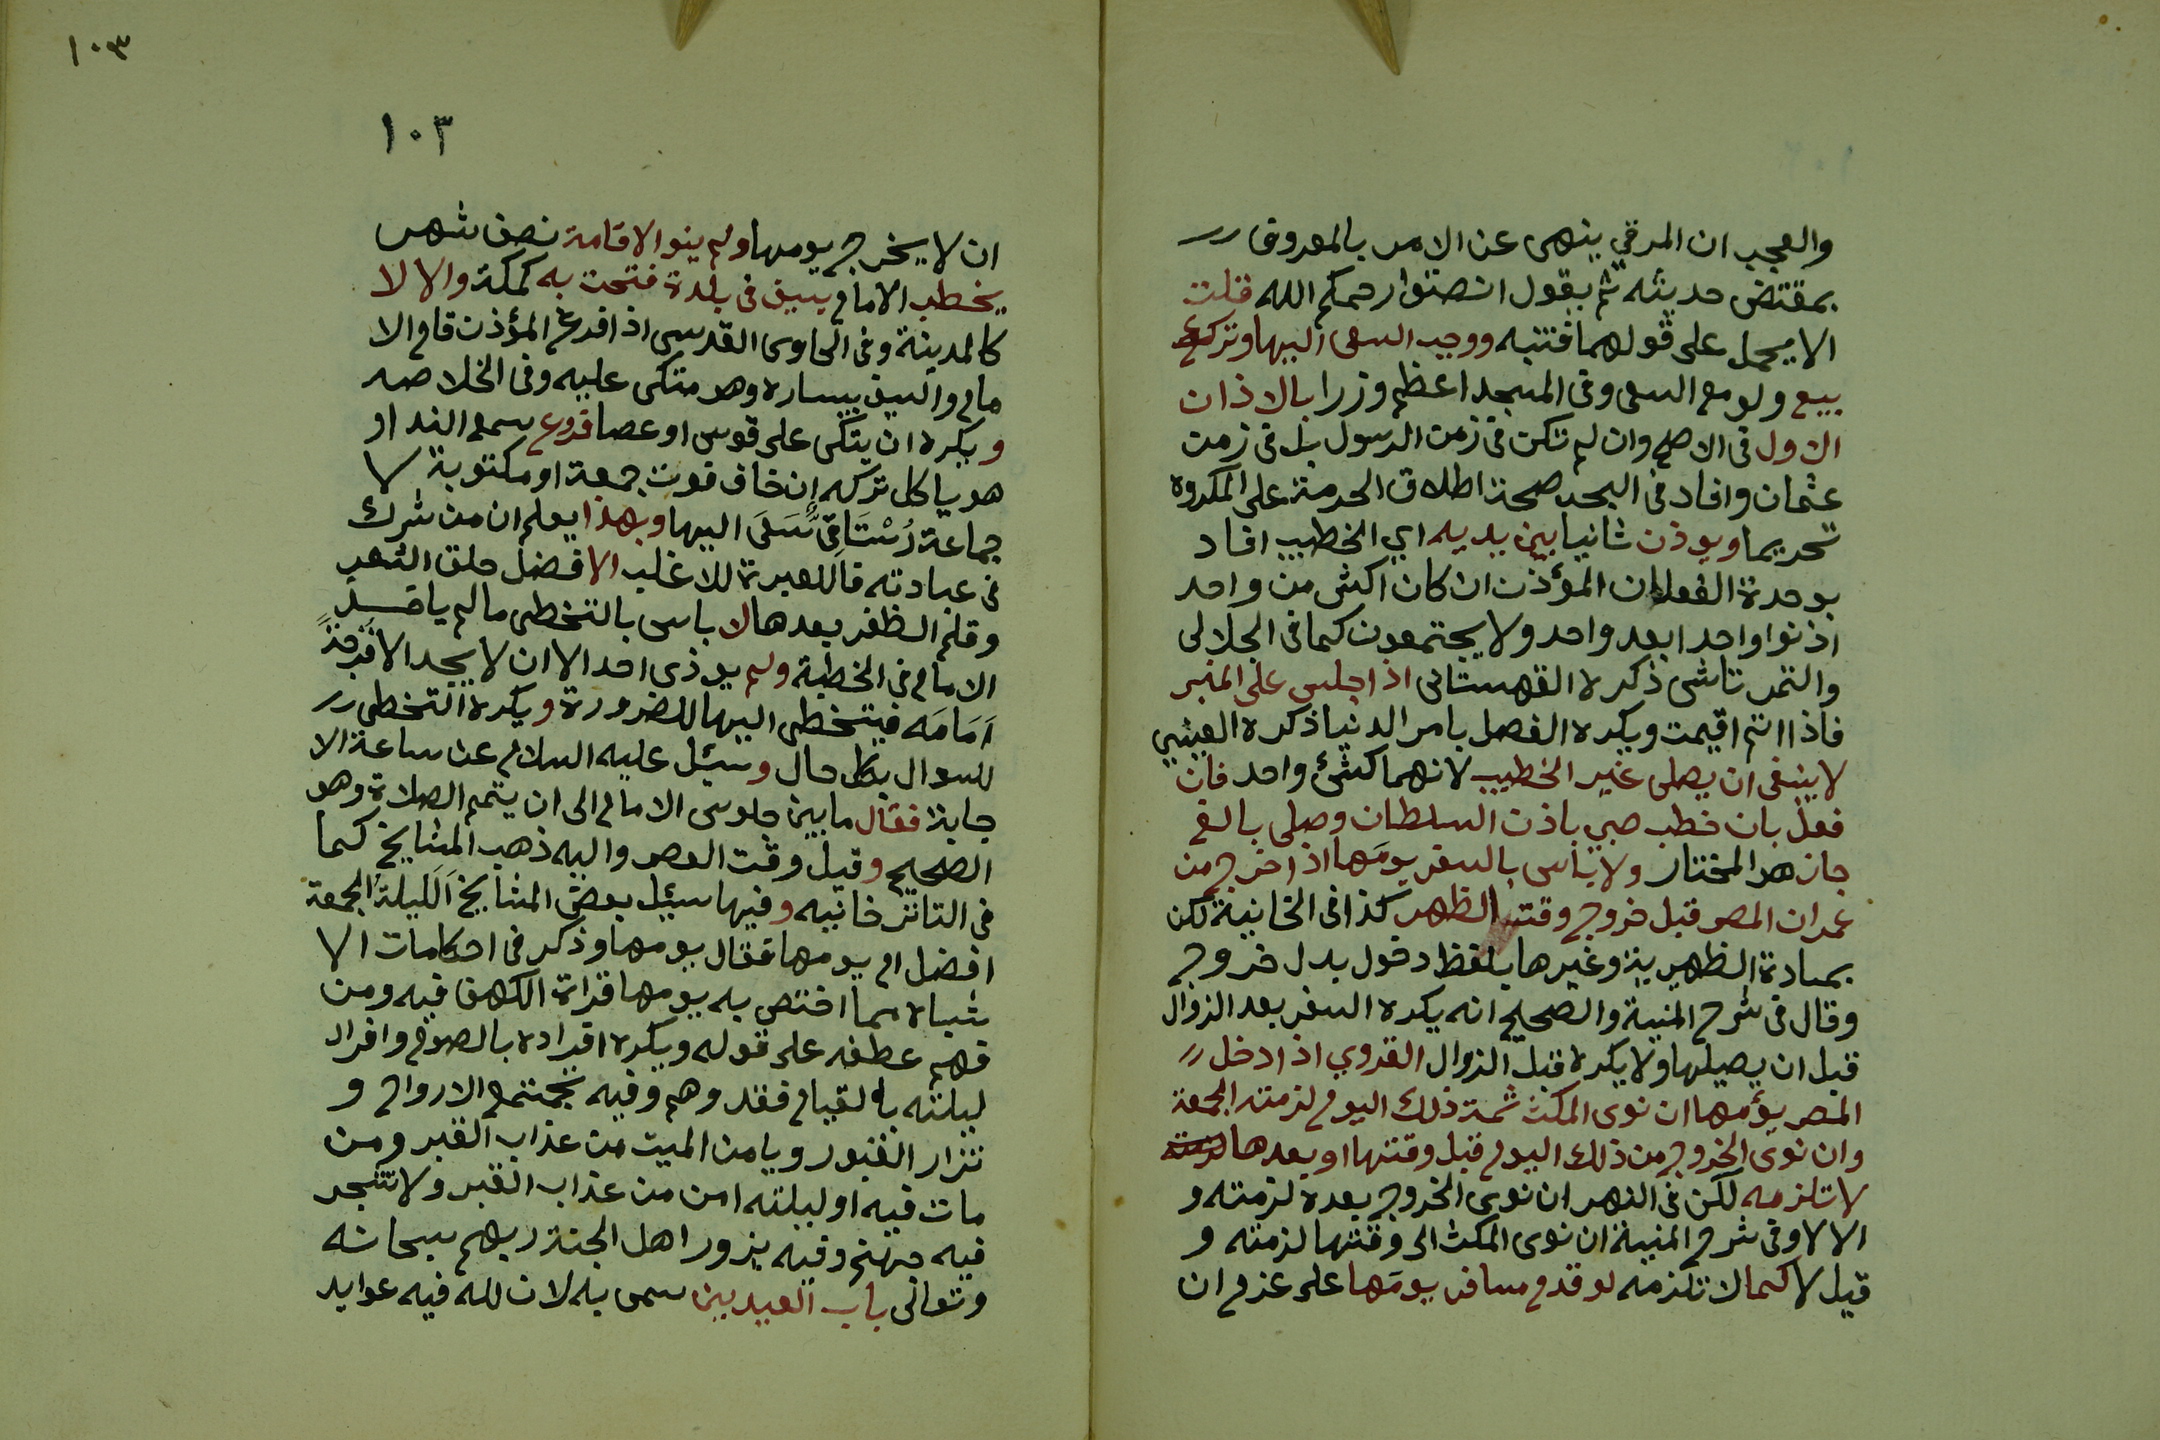 والعجب ان المرقي ينهى عن الامر بالمعروف
بمقتضى حديثه ثم يقول انصتوا رحمكم الله قلت
الا يحمل على قولهما فتنبه ووجب السعى اليها وترك
بيع ولو مع السعى وفى المسجد اعظم وزرا بالاذان
الاول فى الاصح وان لم تكن فى زمن الرسول بل فى زمن
عثمان وافاد فى البحر صحة اطلاق الحرمة على المكروه
تحريما ويوذن ثانيا بين يديه اي الخطيب افاد
بوحدة الفعل ان المؤذن ان كان اكثر من واحد
اذنوا واحدا بعد واحد ولا يجتمعون كما فى الجلالى
والتمرتاشى ذكره القهستانى اذا جلس على المنبر
فاذا اتم اقيمت ويكره الفصل بامر الدنيا ذكره العينى
لا ينبغى ان يصلى غير الخطيب لانهما كشئ واحد فان
فعل بان خطب صبي باذن السلطان وصلى بالغ
جاز هو المختار ولا باس بالسفر يومها اذا خرج من
عمران المصر قبل خروج وقت الظهر كذا فى الخانية لكن
عبارة الظهيرية وغيرها بلفظ دخول بدل خروج
وقال فى شرح المنية والصحيح انه يكره السفر بعد الزوال
قبل ان يصيلها ولا يكره قبل الزوال القروي اذا دخل
المصر يومها ان نوى المكث ثمة ذلك اليوم لزمته الجمعة
وان نوى الخروج من ذلك اليوم قبل وقتها او بعدها
لا تلزمه لكن فى النهر ان نوى الخروج بعده لزمته و
الا لا وفى شرح المنية ان نوى المكث الى وقتها لزمته و
قيل لا كما لا تلزمه لو قدم مسافر يومها على عزم ان
١٠٣
١٠٣
ان لا يخرج يومها ولم ينو الاقامة نصف شهر
يخطب الامام بسيف فى بلدة فتحت به كمكة والا لا
كالمدينة وفى الحاوى القدسي اذا فرغ المؤذن قام الا
مام والسيف بيساره وهو متكى عليه وفى الخلاصه
ويكره ان يتكى على قوس او عصا فروع سمع الندا و
هو ياكل تركه إن خاف فوت جمعة او مكتوبة لا
جماعة رُسْتَاقِيٌّ سَعَى اليها وبهذا يعلم ان من شرك
فى عبادته فالعبرة للاغلب الافضل حلق الشعر
وقلم الظفر بعدها لا باس بالتخطى ما لم ياخذ
الامام فى الخطبة ولم يوذى احد الا ان لا يجد الا فرجةً
اَمَامَه فيتخطى اليها للضرورة ويكره التخطى
للسوال بكل حال وسئل عليه السلام عن ساعة الا
جابة فقال ما بين جلوس الامام الى ان يتم الصلاة وهو
الصحيح وقيل وقت العصر واليه ذهب المشايخ كما
فى التاتر خانيه وفيها سئيل بعض المشايخ اَلَيلة الجمعة
افضل ام يومها فقال يومها وذكر فى احكامات الا
شباه مما اختص به يومها قراة الكهف فيه ومن
فهم عطفه على قوله ويكره افراده بالصوم وافراد
ليلته بالقيام فقد وهم وفيه تجتمع الارواح و
تزار القبور ويامن الميت من عذاب القبر ومن
مات فيه او ليلته امن من عذاب القبر ولا تسجر
فيه جهنم وفيه يزور اهل الجنة ربهم سبحانه
وتعالى باب العيدين سمى به لان لله فيه عوايد